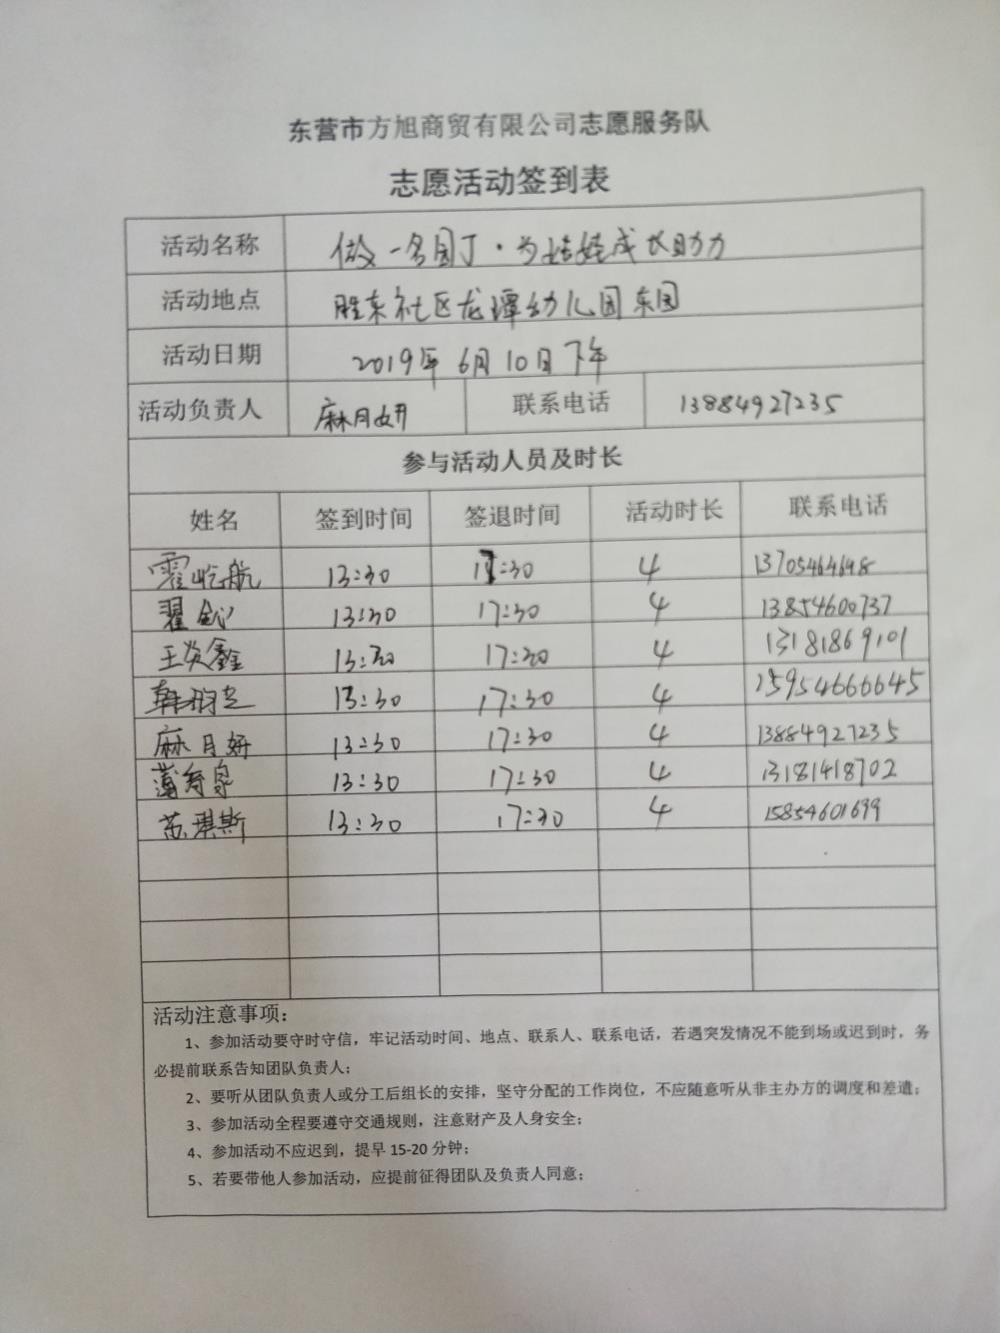 东营市方旭商贸有限公司志愿服务队
志愿活动签到表
活动名称 做一名园丁·为娃娃成长助力
活动地点 胜东社区龙潭幼儿园东园
活动日期 2019年6月10日下午
活动负责人 麻月妍 联系电话 13884927235
参与活动人员及时长
姓名 签到时间 签退时间 活动时长 联系电话
霍屹航 13:30 17:30 4 13705464648
翟 13:30 17:30 4 13854600737
王炎鑫 13:30 17:30 4 13181869101
韩 13:30 17:30 4 15954666645
麻月妍 13:30 17:30 4 13884927235
薄寿泉 13:30 17:30 4 13181418702
苏琪斯 13:30 17:30 4 15854601699
活动注意事项：
1、参加活动要守时守信，牢记活动时间、地点、联系人、联系电话，若遇突发情况不能到场或迟到时，务
必提前联系告知团队负责人；
2、要听从团队负责人或分工后组长的安排，坚守分配的工作岗位，不应随意听从非主办方的调度和差遣；
3、参加活动全程要遵守交通规则，注意财产及人身安全；
4、参加活动不应迟到，提早 15-20 分钟；
5、若要带他人参加活动，应提前征得团队及负责人同意；